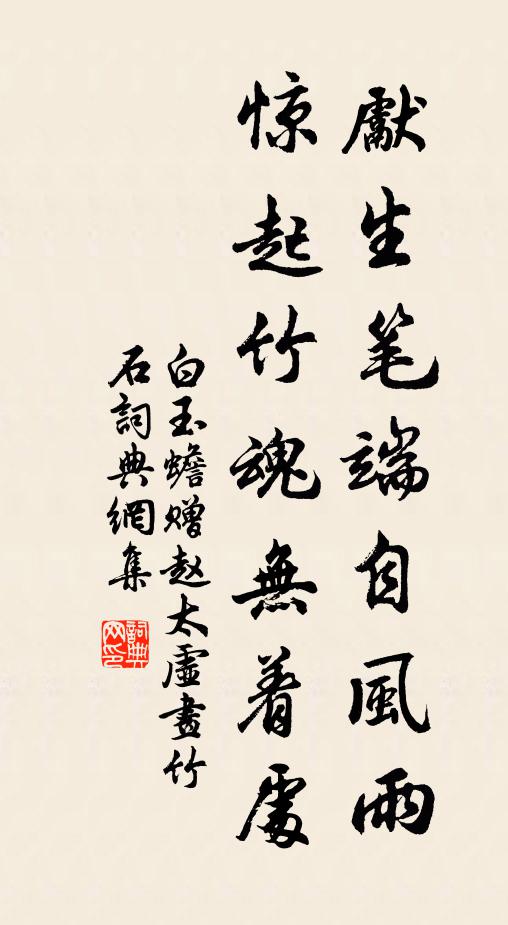 獻生笔端自風雨
惊起竹魂無着處
白玉蟾赠赵太虛畫竹
石詞典網集
詞典网印